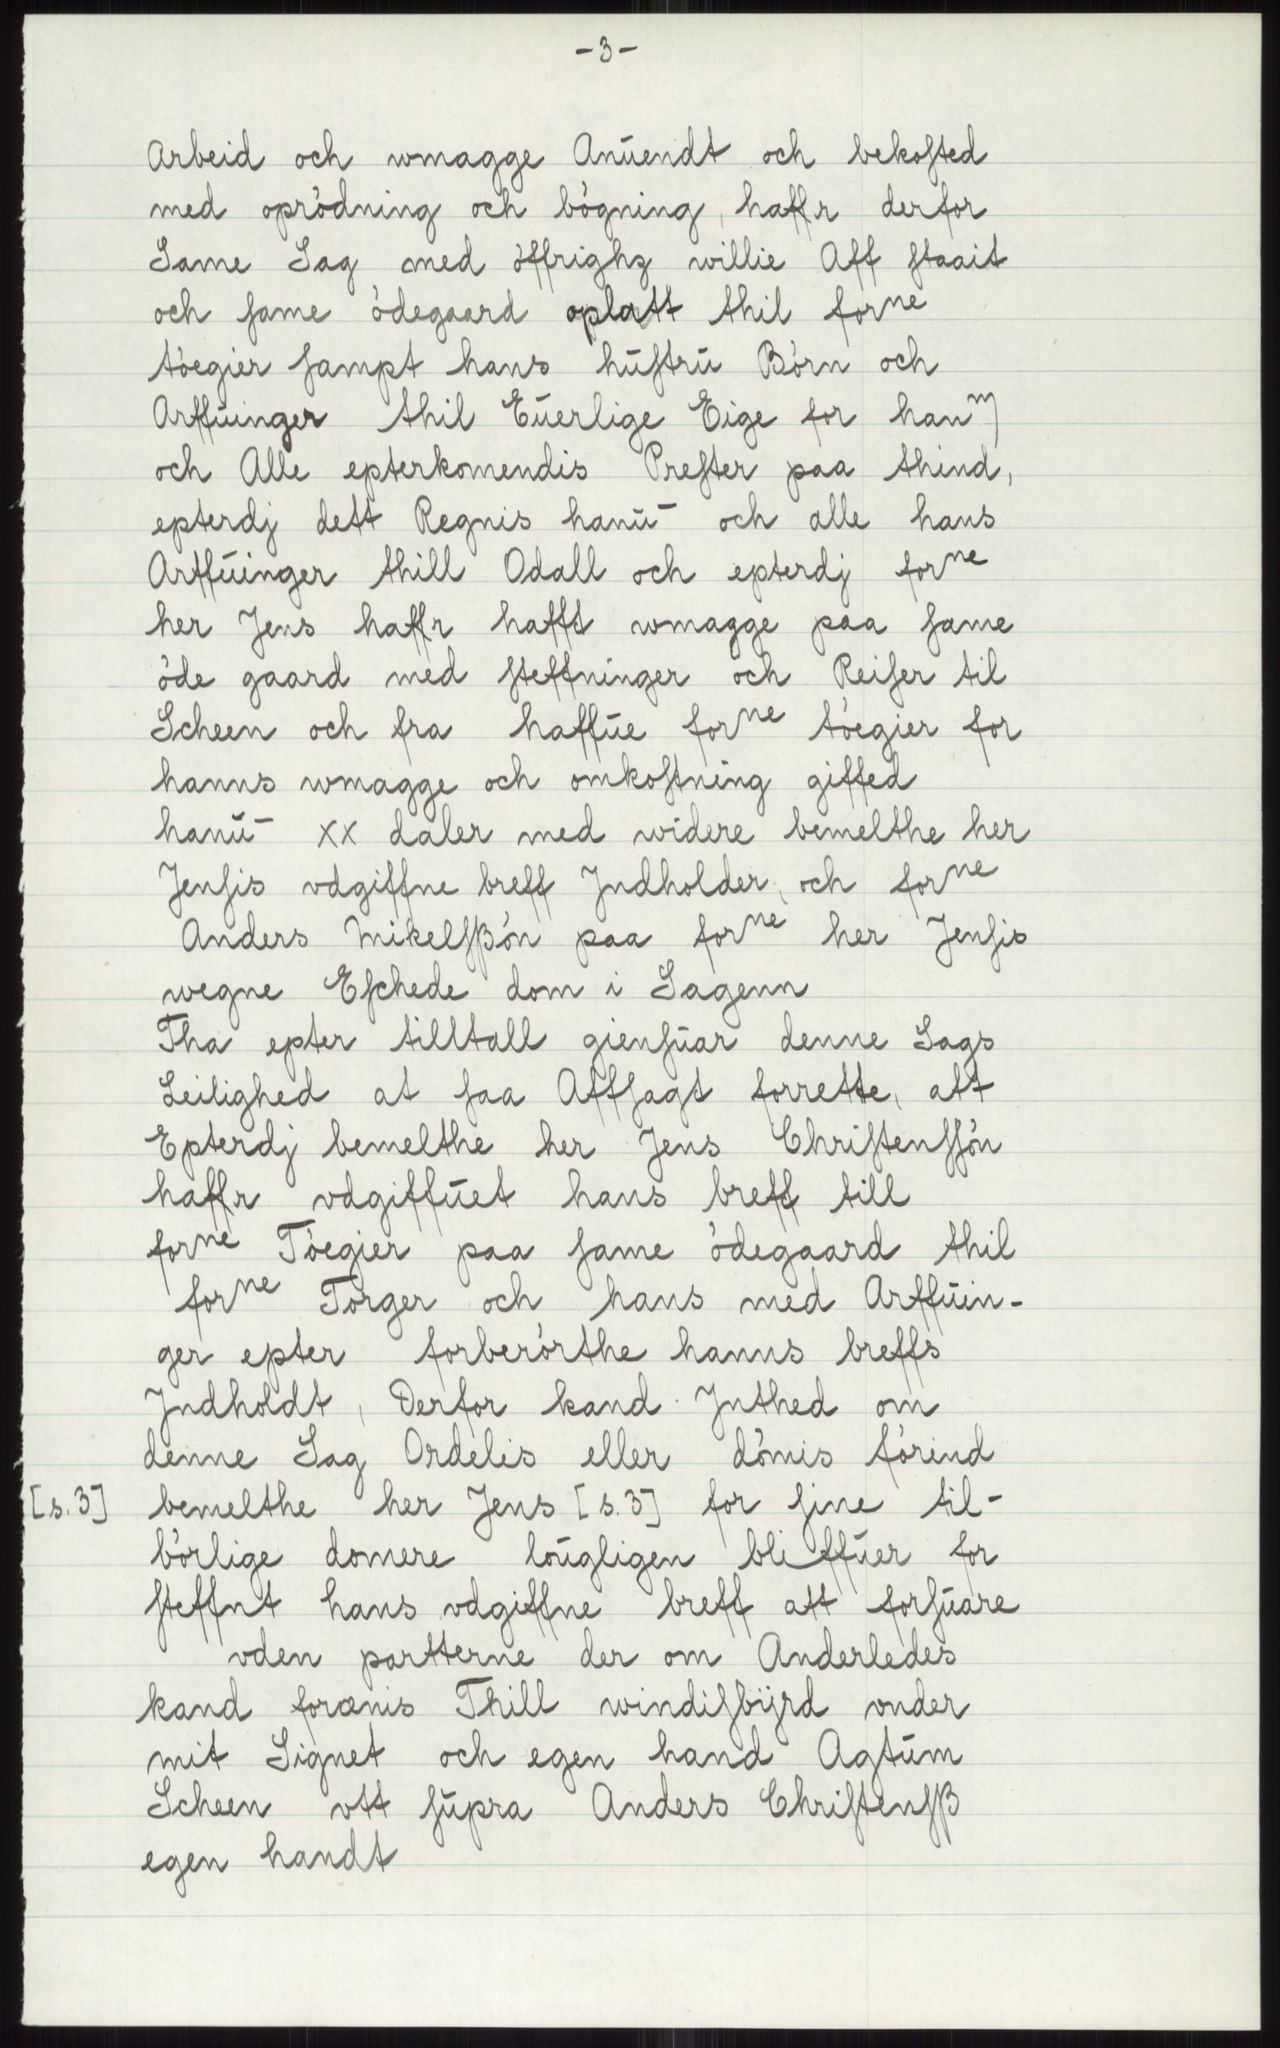 -3-
Arbeid och wmagge Anŭendt och bekosted
med oprödning och bögning, haffr derfor
Same Sag med öffrighz willie Aff staait
och same ödegaard oplatt thil forne
töegier sampt hans hŭstrŭ Börn och
Arffŭinger thil Eŭerlige Eige for hanm
och Alle epterkomendis Prester paa thind,
epterdj dett Regnis hanŭ- och alle hans
Arffŭinger thill Odall och epterdj forne
her Jens haffr hafft wmagge paa same
öde gaard med steffninger och Reiser til
Scheen och fra haffŭe forne töegier for
hanns wmagge och omkostning giffed
hanŭ- xx daler med widere bemelthe her
Jensis vdgiffne breff Jndholder, och forne
Anders Mikelsßön paa forne her Jensis
wegne Eschede dom i Sagenn
Tha epter tilltall giensŭar denne Sags
Leilighed at saa Affsagt forrette, att
Epterdj bemelthe her Jens Christenssön
haffr vdgiffŭet hans breff till
forne Töegier paa same ödegaard thil
forne Torger och hans med Arffŭin-
ger epter forberörthe hanns breffs
Jndholdt, Derfor kand Jnthed om
denne Sag Ordelis eller dömis förind
[s. 3] bemelthe her Jens [s. 3] for sine til-
börlige domere loŭgligen bliffŭer for
steffnt hans vdgiffne breff att forsŭare
vden partterne der om Anderledes
kand forænis Thill windisbÿrd vnder
mit Signet och egen hand Agtŭm
Scheen vtt sŭpra Anders Christensß
egen handt